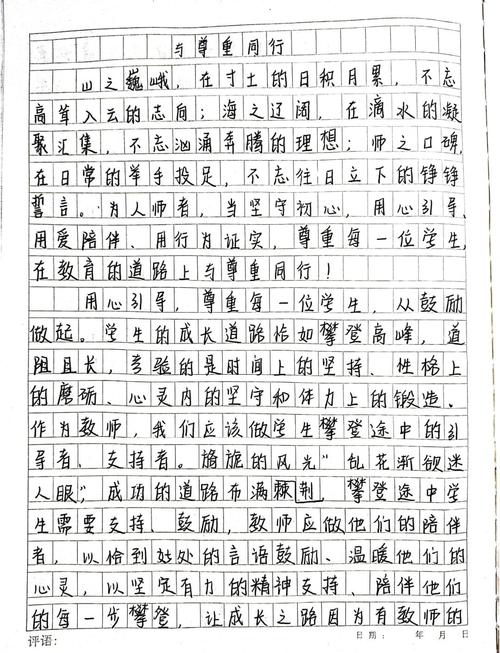 与尊重同行
山之巍峨，在寸土的日积月累，不忘
高耸入云的志向；海之辽阔，在滴水的凝
聚汇集，不忘汹涌奔腾的理想；师之口碑，
在日常的举手投足，不忘往日立下的铮铮
誓言。为人师者，当坚守初心，用心引导、
用爱陪伴、用行为证实，尊重每一位学生，
在教育的道路上与尊重同行！
用心引导，尊重每一位学生，从鼓励
做起。学生的成长道路恰如攀登高峰，道
阻且长，考验的是时间上的坚持、性格上
的磨砺、心灵内的坚守和体力上的锻造。
作为教师，我们应该做学生攀登途中的引
导者、支持者。旖旎的风光“乱花渐欲迷
人眼”；成功的道路布满棘荆，攀登途中学
生需要支持、鼓励，教师应做他们的陪伴
者，以恰到好处的言语鼓励、温暖他们的
心灵，以坚定有力的精神支持、陪伴他们
的每一步攀登，让成长之路因为有教师的
评语：
日期： 年 月 日